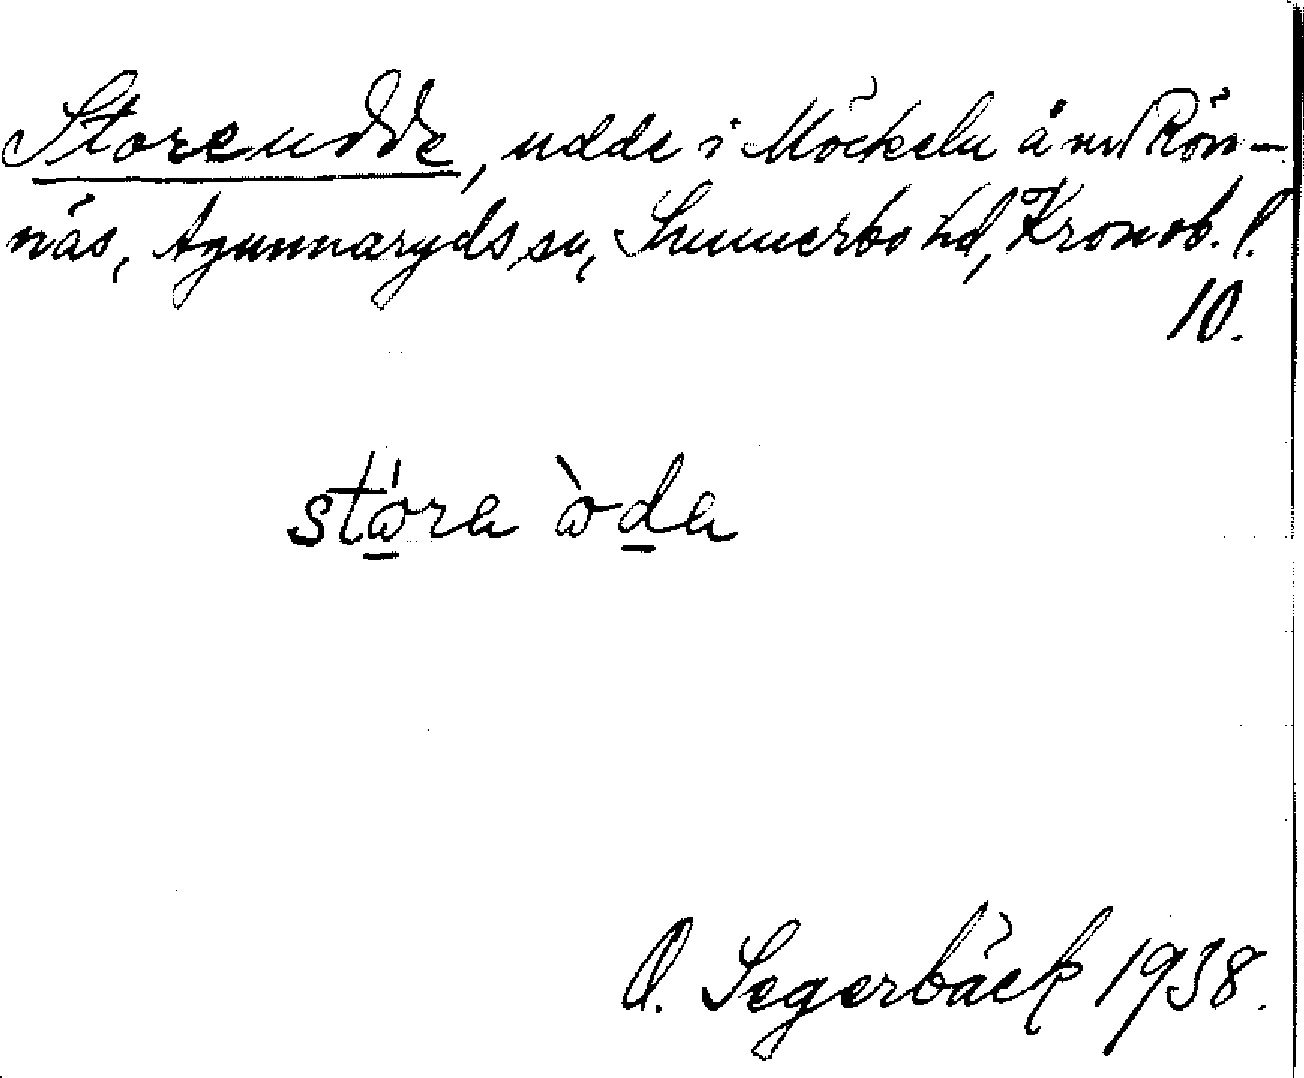 Storeudde, udde i Möckeln å nr 1 Rön-
näs, Agunnaryds sn, Sunnerbo hd, Kronob. l.
10.
stώ̱ra ὼḏa
O. Segerbäck 1938.